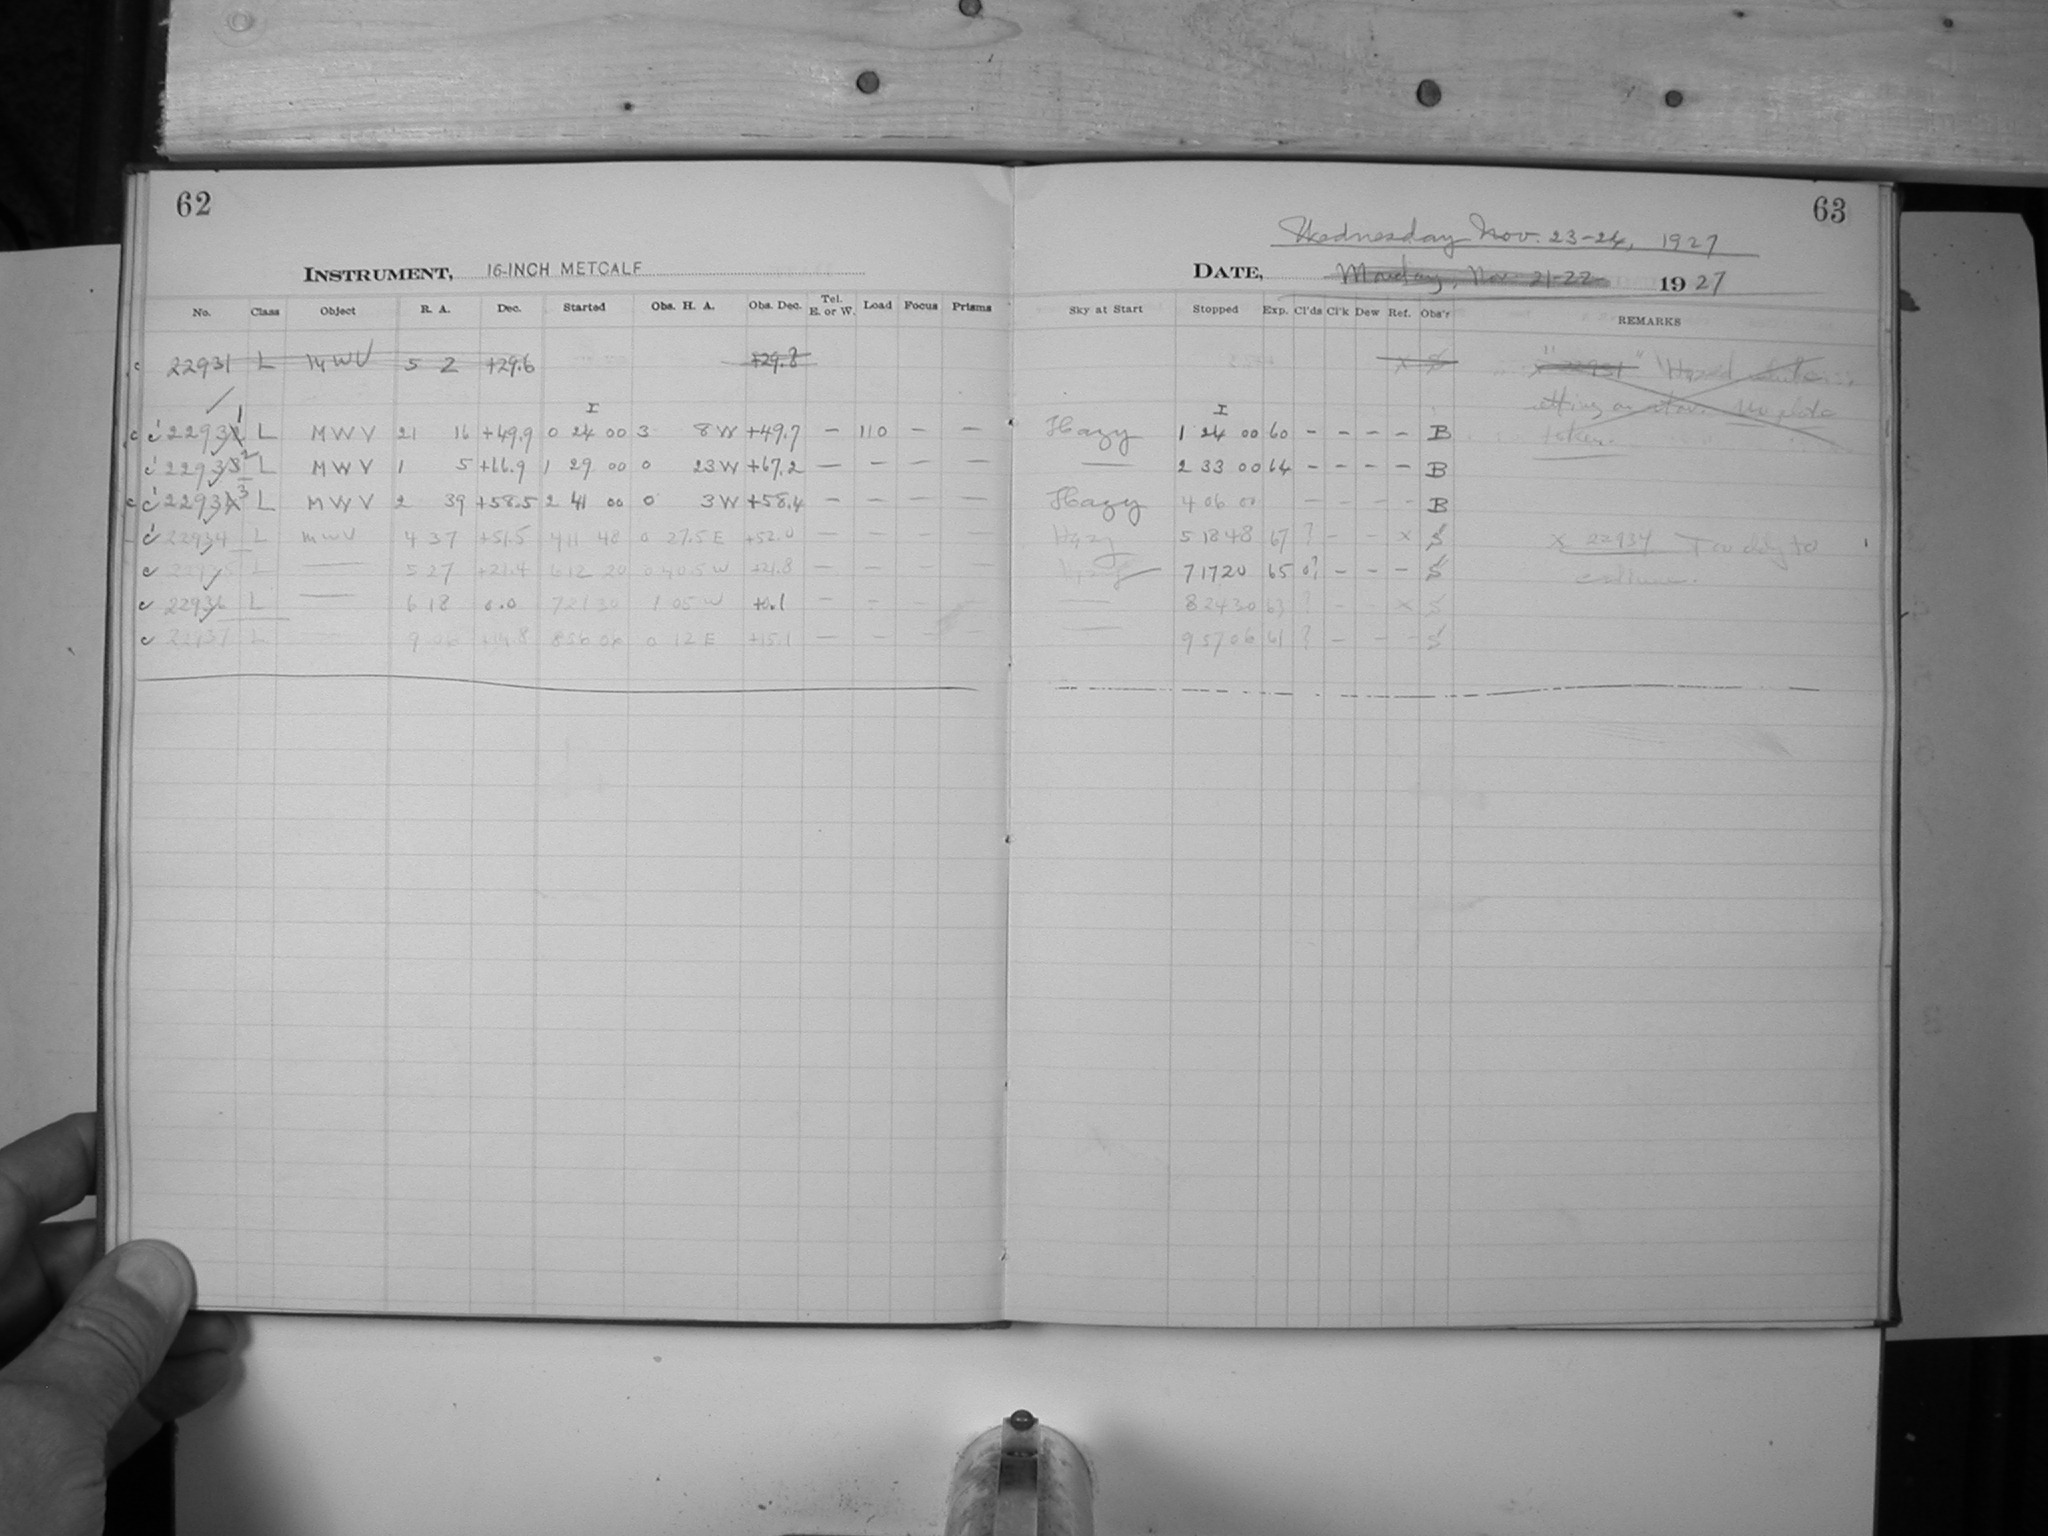 62
63
Wednesday Nov. 23-24, 1927
INSTRUMENT, 16-INCH METCALF
DATE, Monday, Nov. 21-22 1927
No. Class Object R. A. Dec. Started Obs. H. A. Obs. Dec. Tel. E. or W. Load Focus Prisms Sky at Start Stopped Exp. Cl'ds Cl'k Dew Ref. Obs'r REMARKS
c 22931 L MWV 5 2 +29.6 +29.8 x S x "22931"
setting on star. No plate
I I
22931 L MWV 21 16 +49.9 0 24 00 3 8 W +49.7 — 110 — — Hazy 1 24 00 60 - - - - B taken.
22932 L MWV 1 5 +66.9 1 29 00 0 23 W +67.2 — — — — — 2 33 00 64 - - - - B
22933 L MWV 2 39 +58.5 2 41 00 0 3 W +58.4 — — — — Hazy 4 06 00 - - - - B
22934 L MWV 4 37 +51.5 4 11 48 0 27.5 E +52.0 — — — — Hazy 5 18 48 67 ? - - x S x 22934 Too cldy to
c 22935 L — 5 27 +21.4 6 12 20 0 40.5 W +21.8 — — — — 7 17 20 65 0? - - - S estimate.
c 22936 L — 6 18 0.0 7 21 30 1 05 W +0.1 — — — 8 24 30 63 ? - - x S
c 22937 L — 9 06 +14.8 8 56 06 0 12 E +15.1 — — — — — 9 57 06 61 ? - - - S